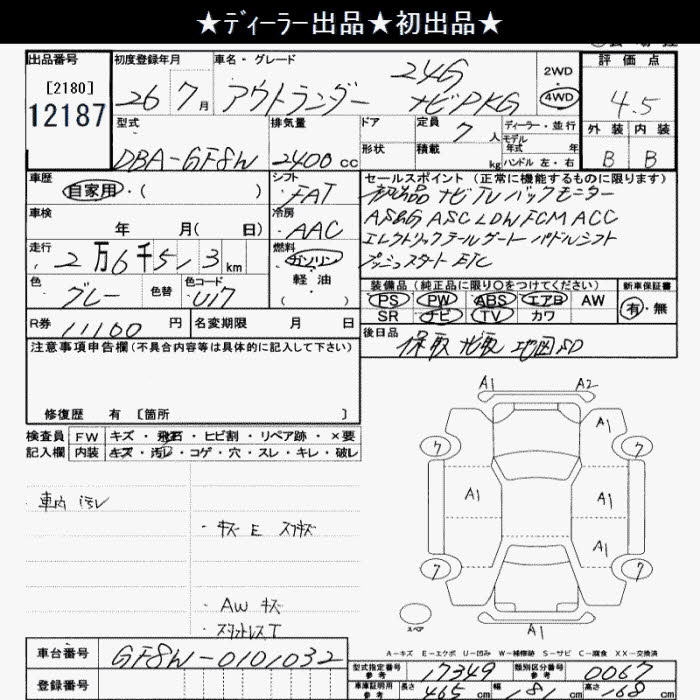 ★ディーラー出品★初出品★
出品番号
[2180]
12187
初度登録年月
26年7月
車名・グレード
アウトランダー 24G ナビPKG
2WD
4WD
評価点
4.5
外装 内装
B B
型式
DBA-GF8W
排気量
2400cc
ドア
形状
定員 7人
積載 kg
ディーラー・並行
モデル年式 年
ハンドル 左・右
車歴
自家用・( )
シフト
FAT
セールスポイント (正常に機能するものに限ります)
初出品 ナビTV バックモニター
AS&G ASC LDW FCM ACC
エレクトリックテールゲート パドルシフト
プッシュスタート ETC
車検
年 月( 日)
冷房
AAC
走行
2万6千5,3km
燃料
ガソリン
軽油
( )
色
グレー
色替
色コード
U17
装備品 (純正品に限り○をつけてください)
PS PW ABS エアB AW
SR ナビ TV カワ
新車保証書
有・無
R券 11100円
名変期限 月 日
後日品
保取 ナ取 地図SD
注意事項申告欄 (不具合内容等は具体的に記入して下さい)
修復歴 有 [箇所 ]
検査員 FW キズ・飛石・ヒビ割・リペア跡・×要
記入欄 内装 キズ・汚レ・コゲ・穴・スレ・キレ・破レ
・車内 汚レ
・キズ E スリキズ
・AW キズ
・スタットレスT
A1 A2
A1
7 7
A1 A1
A1
7 7
スペア
A1
A-キズ E-エクボ U-凹み W-補修跡 S-サビ C-腐食 XX-交換済
車台番号 GF8W-0101032
登録番号
型式指定番号 参考 17349
類別区分番号 参考 0067
車庫証明用 参考 長さ 465cm 幅 181cm 高さ 168cm